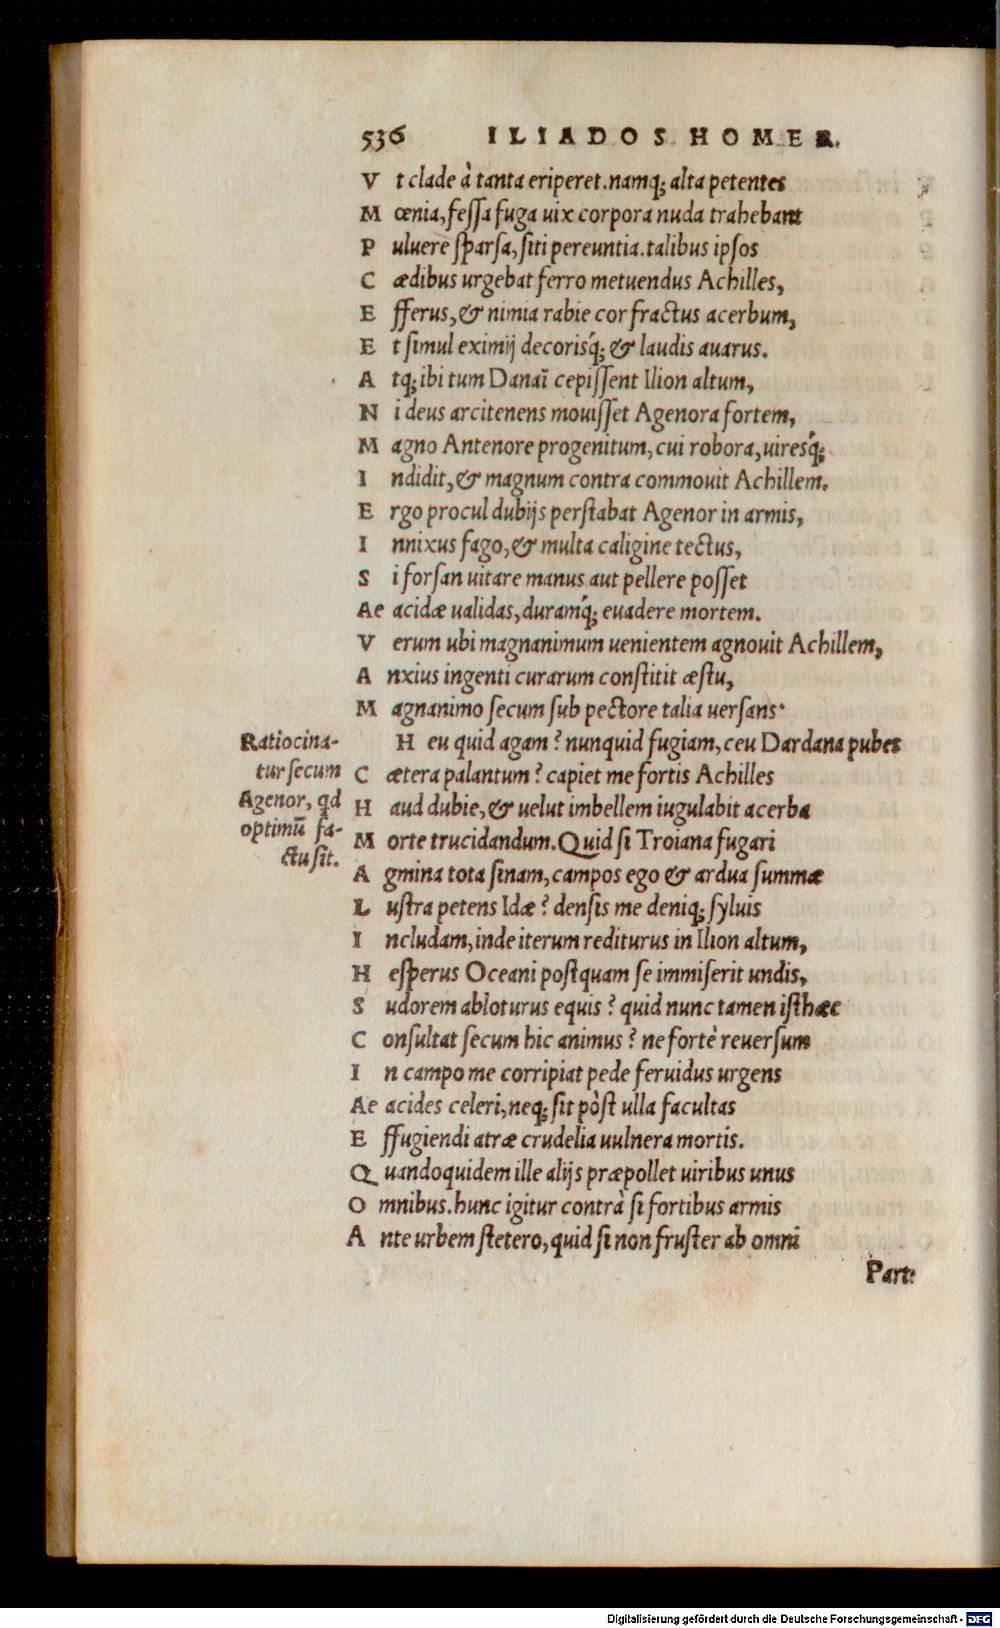 536 ILIADOS HOMER.
Vt clade à tanta eriperet. namq; alta petentes
Mœnia, fessa fuga uix corpora nuda trahebant
Puluere sparsa, siti pereuntia. talibus ipsos
Cædibus urgebat ferro metuendus Achilles,
Efferus, & nimia rabie cor fractus acerbum,
Et simul eximij decorisq́; & laudis auarus.
Atq; ibi tum Danaī cepissent Ilion altum,
Ni deus arcitenens mouisset Agenora fortem,
Magno Antenore progenitum, cui robora, uiresq́;
Indidit, & magnum contra commouit Achillem.
Ergo procul dubijs perstabat Agenor in armis,
Innixus fago, & multa caligine tectus,
Si forsan uitare manus aut pellere posset
Aeacidæ ualidas, duramq́; euadere mortem.
Verum ubi magnanimum uenientem agnouit Achillem,
Anxius ingenti curarum constitit æstu,
Magnanimo secum sub pectore talia uersans.
Heu quid agam? nunquid fugiam, ceu Dardana pubes
Cætera palantum? capiet me fortis Achilles
Haud dubie, & uelut imbellem iugulabit acerba
Morte trucidandum. Quid si Troiana fugari
Agmina tota sinam, campos ego & ardua summæ
Lustra petens Idæ? densis me deniq; syluis
Includam, inde iterum rediturus in Ilion altum,
Hesperus Oceani postquam se immiserit undis,
Sudorem abloturus equis? quid nunc tamen isthæc
Consultat secum hic animus? ne fortè reuersum
In campo me corripiat pede feruidus urgens
Aeacides celeri, neq; sit pòst ulla facultas
Effugiendi atræ crudelia uulnera mortis.
Quandoquidem ille alijs præpollet uiribus unus
Omnibus. hunc igitur contrà si fortibus armis
Ante urbem stetero, quid si non fruster ab omni
Parte
Ratiocina-
tur secum
Agenor, qd
optimū fa-
ctu sit.
Digitalisierung gefördert durch die Deutsche Forschungsgemeinschaft - DFG